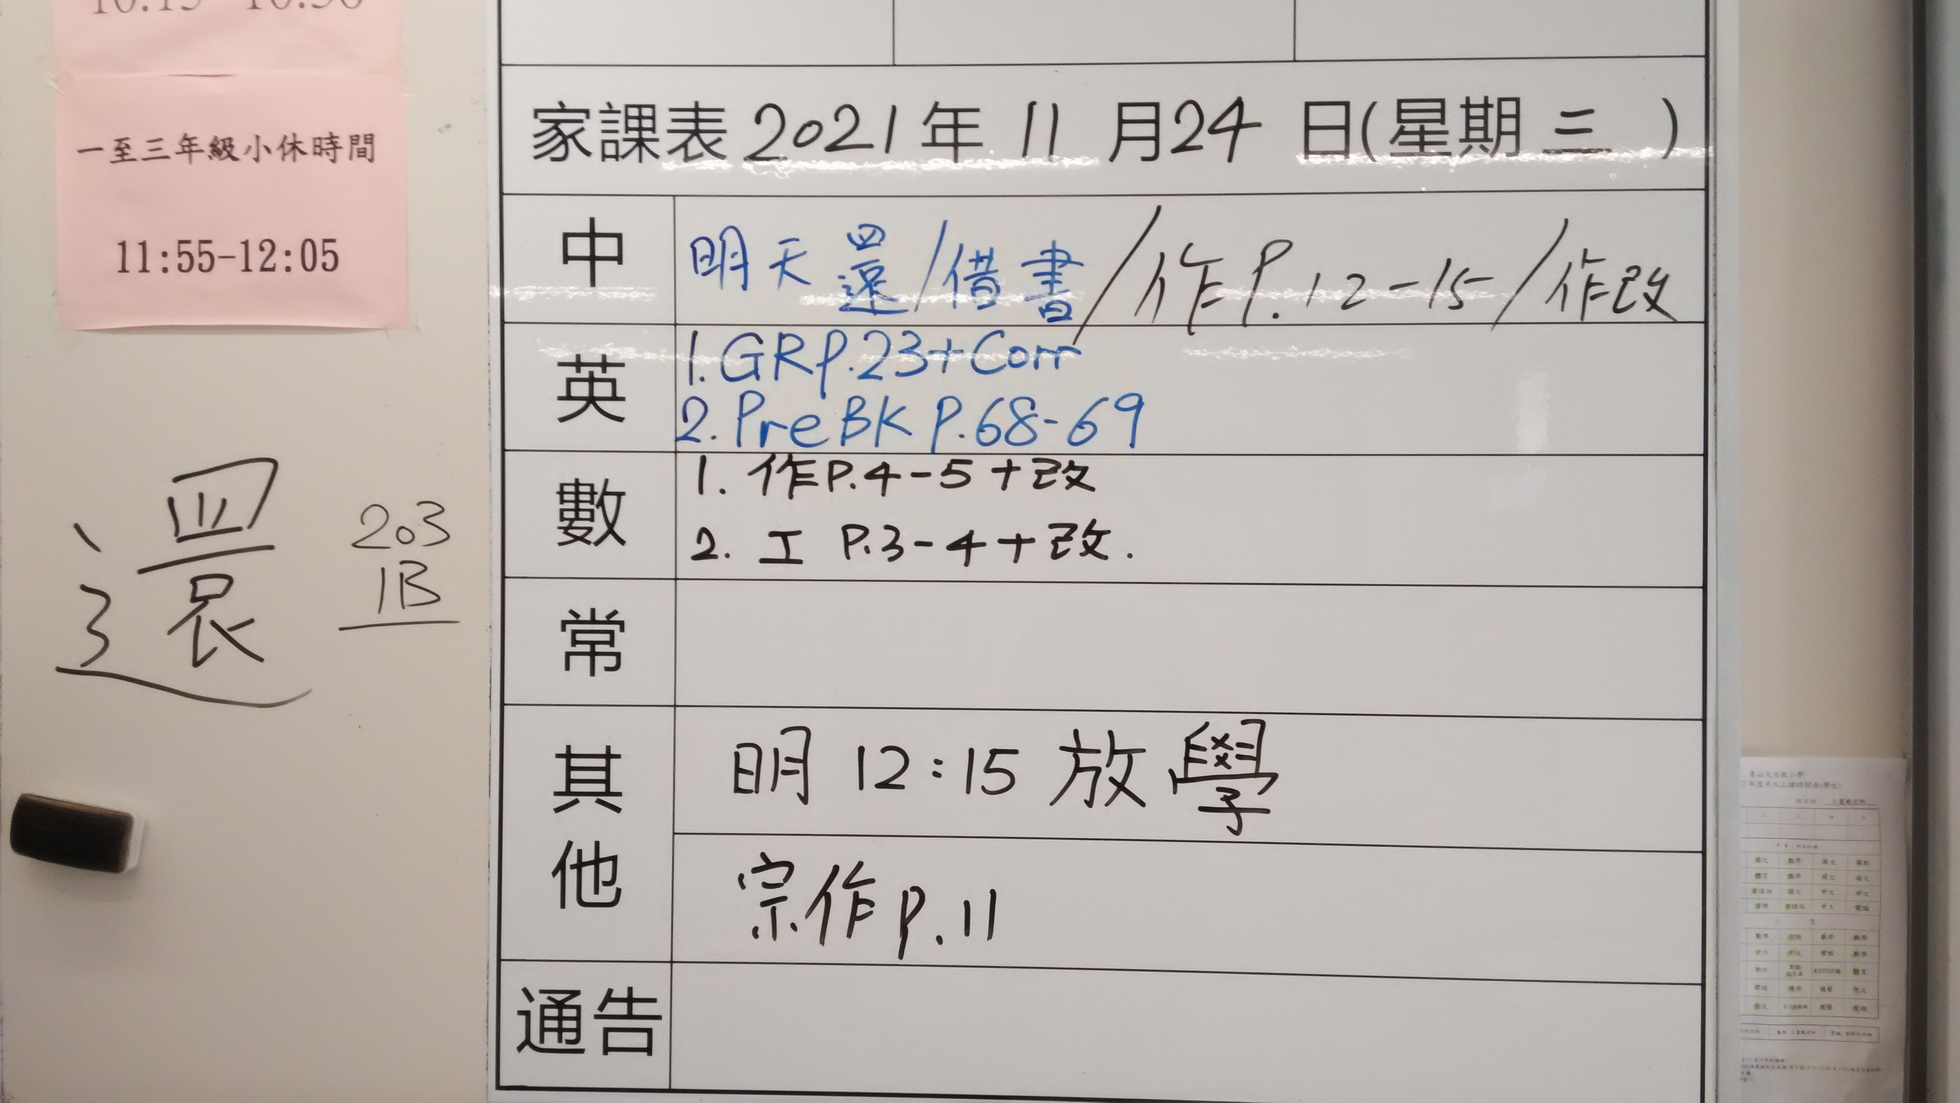 一至三年級小休時間
11:55-12:05
還
203
1B
家課表 2021年 11 月24 日(星期 三 )
中
明天還/借書/作P.12-15/作改
英
1. GR p.23+Corr
2. Pre BK P.68-69
數
1. 作P.4-5+改
2. 工 P.3-4+改.
常
其他
明 12:15 放學
宗作p.11
通告